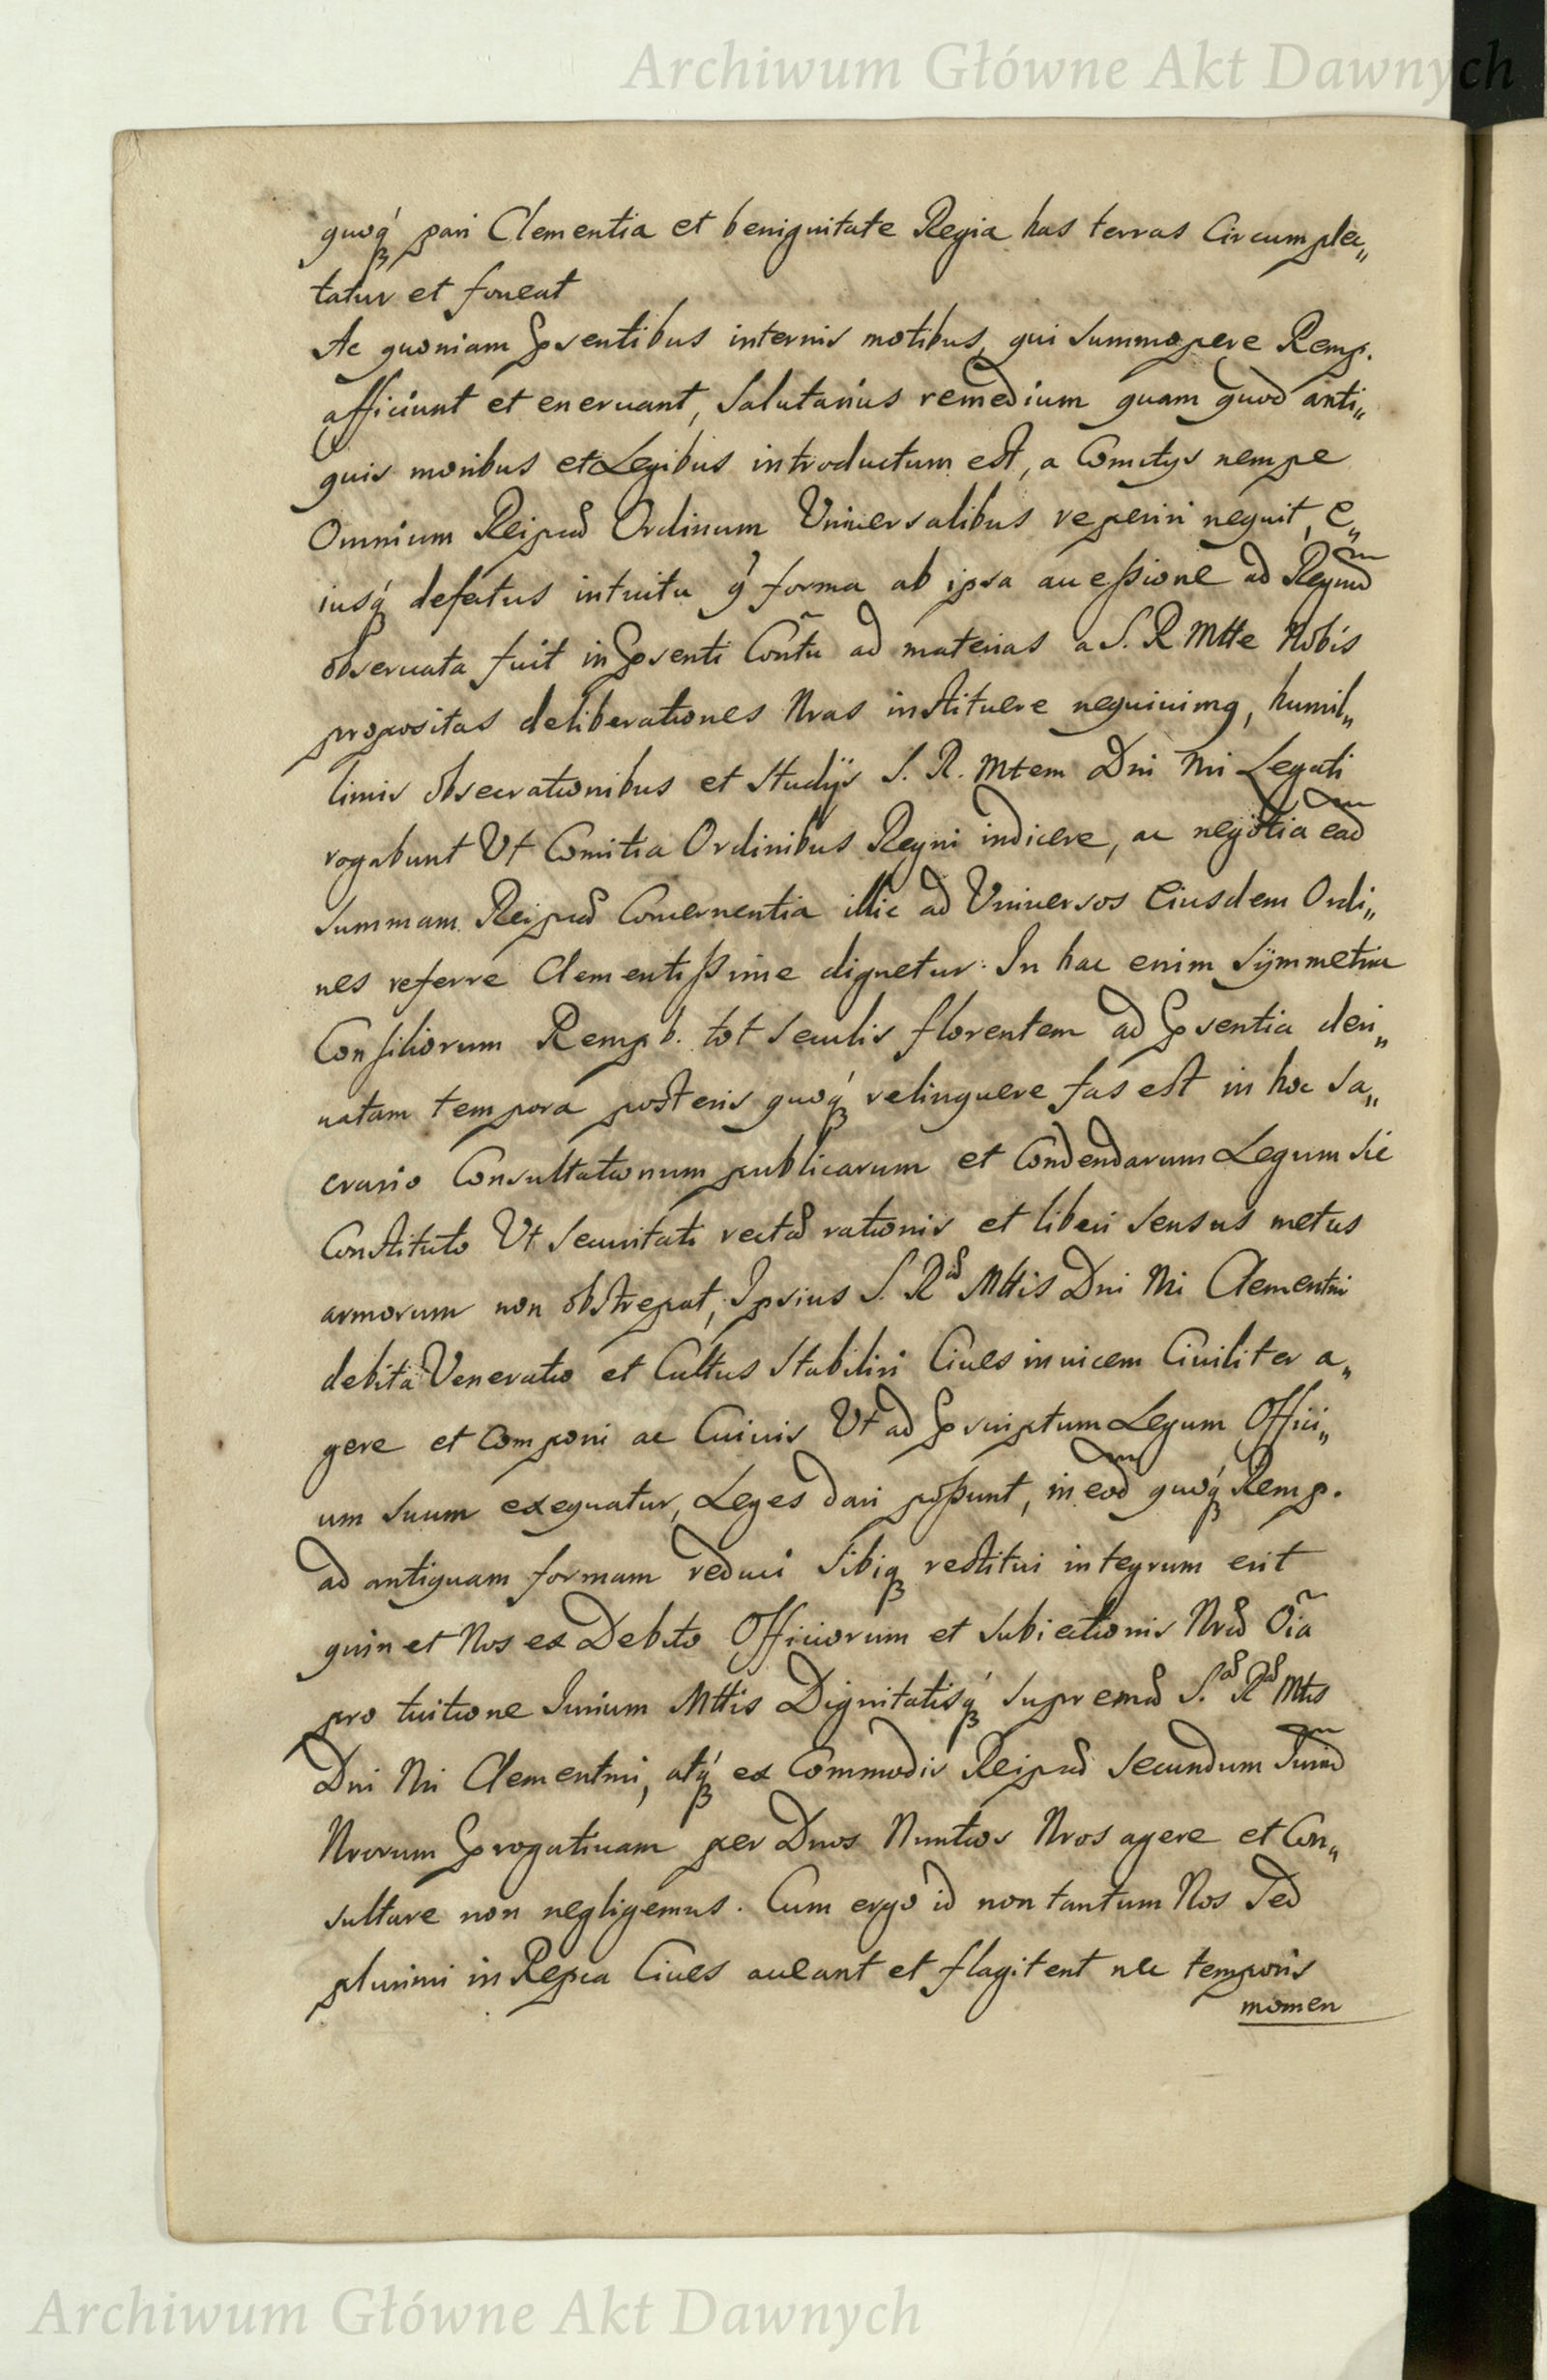 Archiwum Główne Akt Dawnych
quoq́ꝫ pari Clementia et benignitate Regia has terras Circumplec„
tatur et foueat
Ac quoniam p̱sentibus internis motibus, qui Summopere Remp.
afficiunt et eneruant, Salutarius remedium quam quod anti„
quis moribus et Legibus introductum est, a Comitÿs nempe
Omnium Reipud Ordinum Uniuersalibus reperiri nequit, e„
iusq́ꝫ defectus intuitu q́ forma ab ipsa accessione ad Regnud
obseruata fuit in p̱senti Con̄tu ad materias a S. R Mtte Nobis
propositas deliberationes Nras instituere nequiuimꝗ, humil„
limis obsecrationibus et Studÿs S. R. Mtem Dni Nri Legati
rogabunt Ut Comitia Ordinibus Regni indicere, ac negotia ead
Summam Reipud Concernentia illic ad Uniuersos Eiusdem Ordi„
nes referre Clementissime dignetur. In hac enim Sÿmmetria
Consiliorum Rempb. tot Seculis florentem ad p̱sentia deri„
uatam tempora posteris quoq́ꝫ relinquere fas est in hoc Sa„
crario Consultationum publicarum et Condendarum Legum Sic
Constituto Ut Securitati rectæ rationis et liberi Sensus metus
armorum non obstrepat, Ipsius S. Ræ Mttis Dni Nri Clementmi
debita Veneratio et Cultus Stabiliri Ciues inuicem Ciuiliter a„
gere et componi ac Cuiuis Ut ad p̱scriptum Legum Offici„
um Suum exequatur, Leges dari possunt, in eod quoq́ꝫ Remp.
ad antiquam formam reduci Sibiqꝫ restitui integrum erit
quin et Nos ex Debito Officiorum et Subiectionis Nræ Oīa
pro tuitione Iurium Mttis Dignitatisq́ꝫ Supremæ S.æ Ræ Mttis
Dni Nri Clementmi, atq́ꝫ ex Commodis Reipud Secundum Iuriud
Nrorum p̱rogatiuam per Dnos Nuntios Nros agere et Con„
sultare non negligemus. Cum ergo id non tantum Nos Sed
plurimi in Repca Ciues aueant et flagitent nec temporis
momen
Archiwum Główne Akt Dawnych